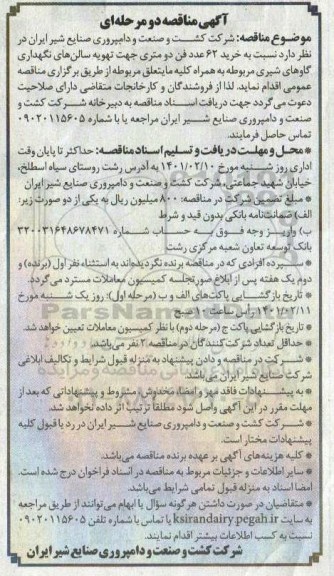 آگهی مناقصه دو مرحله‌ای
موضوع مناقصه: شرکت کشت و صنعت و دامپروری صنایع شیر ایران در
نظر دارد نسبت به خرید ۶۲ عدد فن دو متری جهت تهویه سالن‌های نگهداری
گاوهای شیری مربوطه به همراه کلیه مایتعلق مربوطه از طریق برگزاری مناقصه
عمومی اقدام نماید. لذا از فروشندگان و کارخانجات متقاضی دارای صلاحیت
دعوت می‌گردد جهت دریافت اسناد مناقصه به دبیرخانه شرکت کشت و
صنعت و دامپروری صنایع شیر ایران مراجعه یا با شماره ۰۹۰۲۰۱۱۵۶۰۵
تماس حاصل فرمایند.
* محل و مهلت دریافت و تسلیم اسناد مناقصه: حداکثر تا پایان وقت
اداری روز شنبه مورخ ۱۴۰۱/۰۲/۱۰ به آدرس رشت روستای سیاه اسطلخ،
خیابان شهید جماعتی، شرکت کشت و صنعت و دامپروری صنایع شیر ایران
* مبلغ تضمین شرکت در مناقصه: ۸۰۰ میلیون ریال به یکی از دو صورت زیر:
الف) ضمانت‌نامه بانکی بدون قید و شرط
ب) واریز وجه فوق به حساب شماره ۳۳۰۰۳۱۶۴۸۶۷۸۴۷۱
بانک توسعه تعاون شعبه مرکزی رشت
* سپرده افرادی که در مناقصه برنده نگردیده‌اند به استثناء نفر اول (برنده) و
دوم یک هفته پس از ابلاغ صورتجلسه کمیسیون معاملات مسترد می‌گردد.
* تاریخ بازگشایی پاکت‌های الف و ب (مرحله اول): روز یک شنبه مورخ
۱۴۰۱/۰۲/۱۱ رأس ساعت ۱۰ صبح
* تاریخ بازگشایی پاکت ج (مرحله دوم) با نظر کمیسیون معاملات تعیین خواهد شد.
حداقل تعداد شرکت کنندگان در مناقصه ۲ نفر می‌باشد.
* شرکت در مناقصه و دادن پیشنهاد به منزله قبول شرایط و تکالیف ابلاغی
شرکت صنایع شیر ایران می‌باشد.
* به پیشنهادات فاقد مهر و امضاء، مخدوش، مشروط و پیشنهاداتی که بعد از
مهلت مقرر در این آگهی واصل شود مطلقاً ترتیب اثر داده نخواهد شد.
* شرکت کشت و صنعت و دامپروری صنایع شیر ایران در رد یا قبول کلیه
پیشنهادات مختار است.
* کلیه هزینه‌های آگهی بر عهده برنده مناقصه می‌باشد.
* سایر اطلاعات و جزئیات مربوط به مناقصه در اسناد فراخوان درج شده است.
امضا اسناد به منزله قبول تمامی شرایط می‌باشد.
* متقاضیان در صورت داشتن هرگونه سؤال یا ابهام می‌توانند از طریق مراجعه
به سایت ksirandairy.pegah.ir یا تماس با شماره تلفن ۰۹۰۲۰۱۱۵۶۰۵
نسبت به کسب اطلاعات بیشتر اقدام نمایند.
شرکت کشت و صنعت و دامپروری صنایع شیر ایران